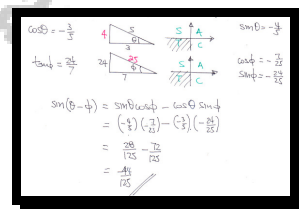 cosθ = -3/5
4
5
θ
3
S A
T C
sinθ = -4/5
tanφ = 24/7
24
25
φ
7
S A
T C
cosφ = -7/25
sinφ = -24/25
sin(θ - φ) = sinθ cosφ - cosθ sinφ
= (-4/5)(-7/25) - (-3/5)(-24/25)
= 28/125 - 72/125
= -44/125